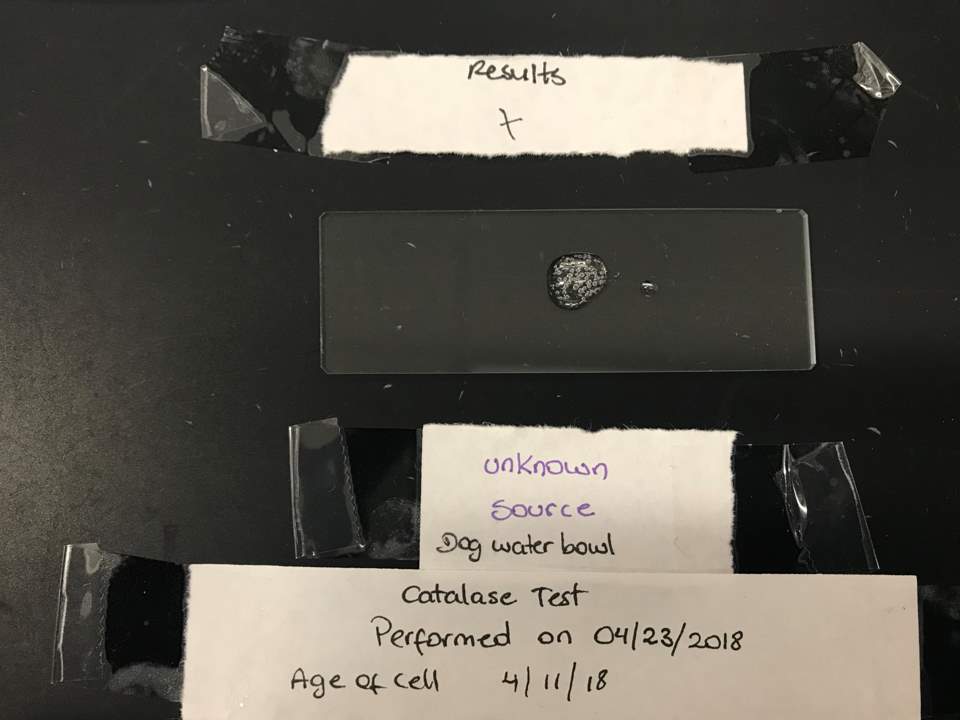 Results
+
unknown
source
Dog water bowl
Catalase Test
Performed on 04/23/2018
Age of cell 4/11/18